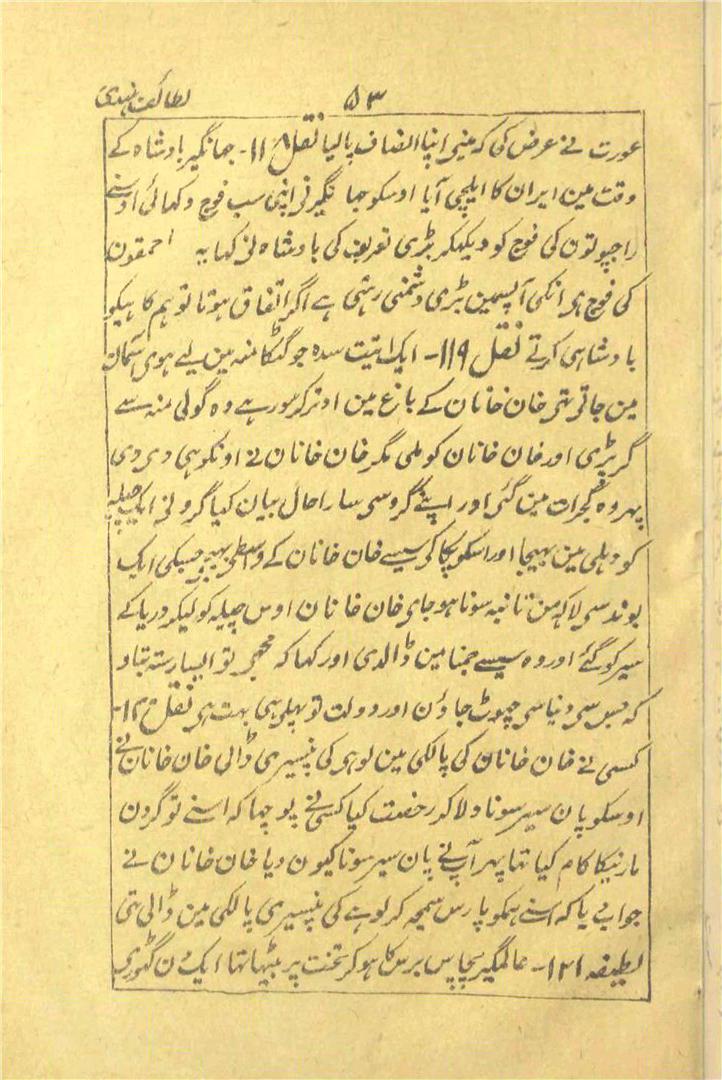 لطائف ہندی
۵۳
عورت نے عرض کی کہ مینی اپنا انصاف پالیا نقل ۱۱۸- جہانگیر بادشاہ کے
وقت مین ایران کا ایلچی آیا اوسکو جہا نگیر نی اپنی سب فوج دکھائی اوسنے
راجپوتون کی فوج کو دیکھکر بڑی تعریف کی بادشاہ نی کہا یہ احمقون
کی فوج ہی انکی آپسمین بڑی دشمنی رہتی ہے اگر اتفاق ہوتا تو ہم کاہیکو
بادشاہی کرتے نقل ۱۱۹- ایک اتیت سدہ جو گٹکا منہ مین لیے ہوی آسمان
مین جاتی تہی خان خانان کے باغ مین اوتر کر سو رہے وہ گولی منہ سے
گر پڑی اور خان خانان کو ملی مگر خان خانان نے اونکو ہی دی دی
پہر وہ گجرات مین گئی اور اپنے گرو سی سارا حال بیان کیا گرو نی ایک چیلہ
کو دہلی مین بہیجا اور اسکو پکا کر سیسے خان خانان کے واسطی بہیجی جسکی ایک
بوند سی لاکہ من تانبہ سونا ہو جای خان خانان اوس چیلہ کو لیکر دریا کے
سیر کو گئے اور وہ سیسے جمنا مین ڈالدی اور کہا کہ مجھی تو ایسا رستہ بتاو
کہ جس سی دنیا سی چہوٹ جاؤن اور دولت تو پہلی ہی بہت ہی نقل ۱۲۰-
کسی نے خان خانان کی پالکی مین لوہی کی پنسیری ڈالی خان خانان نے
اوسکو پان سیر سونا دلا کر رخصت کیا کسی نے پوچہا کہ اسنے تو گردن
مارنیکا کام کیا تہا پہر آپ نے پان سیر سونا کیون دیا خان خانان نے
جواب دیا کہ اسنے ہمکو پارس سمجہ کر لوہے کی پنسیری پالکی مین ڈالی تہی
لطیفہ ۱۲۱- عالمگیر پچاس برس کا ہو کر تخت پر بیٹہا تہا ایک دن گہوڑی